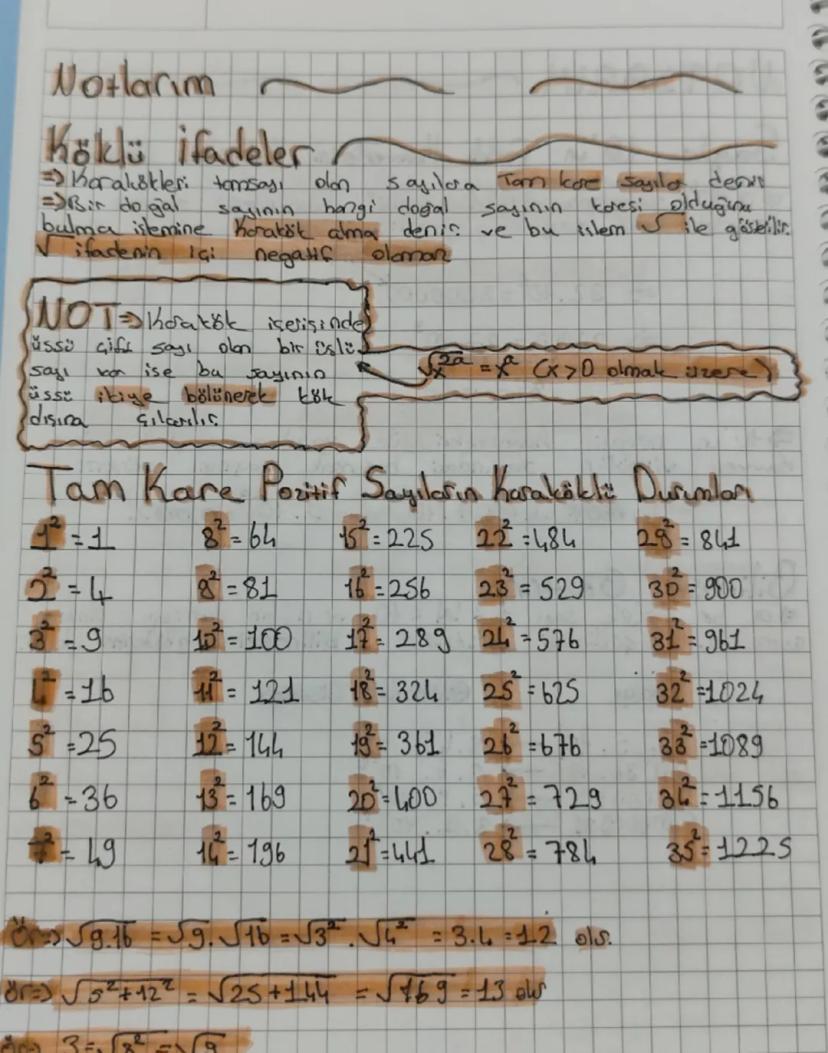 Notlarım
Köklü ifadeler
=> Karakökleri tamsayı olan sayılara Tam kare sayılar denir
=> Bir doğal sayının hangi doğal sayının karesi olduğunu
bulma işlemine karakök alma denir ve bu işlem √ ile gösterilir.
√ ifadenin içi negatif olamaz
NOT => Karakök içerisinde
üssü çift sayı olan bir üslü
sayı var ise bu sayının
üssü ikiye bölünerek kök
dışına çıkarılır
√x²ᵃ = xᵃ (x>0 olmak üzere)
Tam Kare Pozitif Sayıların Karaköklü Durumları
1² = 1 8² = 64 15² = 225 22² = 484 29² = 841
2² = 4 9² = 81 16² = 256 23² = 529 30² = 900
3² = 9 10² = 100 17² = 289 24² = 576 31² = 961
4² = 16 11² = 121 18² = 324 25² = 625 32² = 1024
5² = 25 12² = 144 19² = 361 26² = 676 33² = 1089
6² = 36 13² = 169 20² = 400 27² = 729 34² = 1156
7² = 49 14² = 196 21² = 441 28² = 784 35² = 1225
ör=> √9.16 = √9.√16 = √3².√4² = 3.4 = 12 olr.
ör=> √5²+12² = √25+144 = √169 = 13 olur
ör=> 3 = √3² => √9